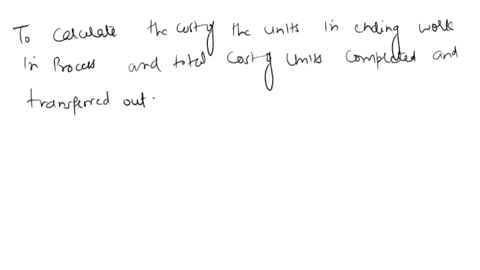 To calculate the cost of the units in ending work
in Process and total cost of units completed and
transferred out.